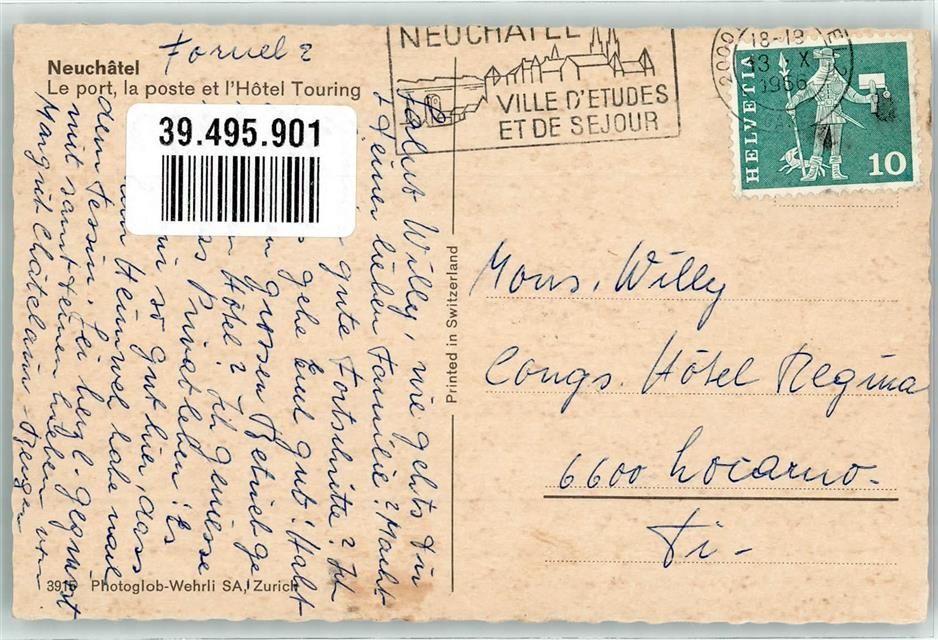 Fornel 2
Neuchâtel
Le port, la poste et l'Hôtel Touring
39.495.901
NEUCHÂTEL
VILLE D'ETUDES
ET DE SEJOUR
2000
18-19
13 X
1966
HELVETIA
10
Salut Willy, wie gehts dir
& Deiner lieben Familie? Macht
gute Fortschritte? Ich
gehe hend gut! Habt
grossen Betrieb ge
Hotel? Ich geniesse
Privatleben! Es
so gut hier, dass
Heimweh habe nach
dem Tessin. Sei herzl. gegrüsst
mit samt Deinen Lieben von
Margrit Châtelain-Benger
Printed in Switzerland
Mons. Willy
Congs. Hôtel Regina
6600 Locarno-
Ti-
3916 Photoglob-Wehrli SA, Zurich